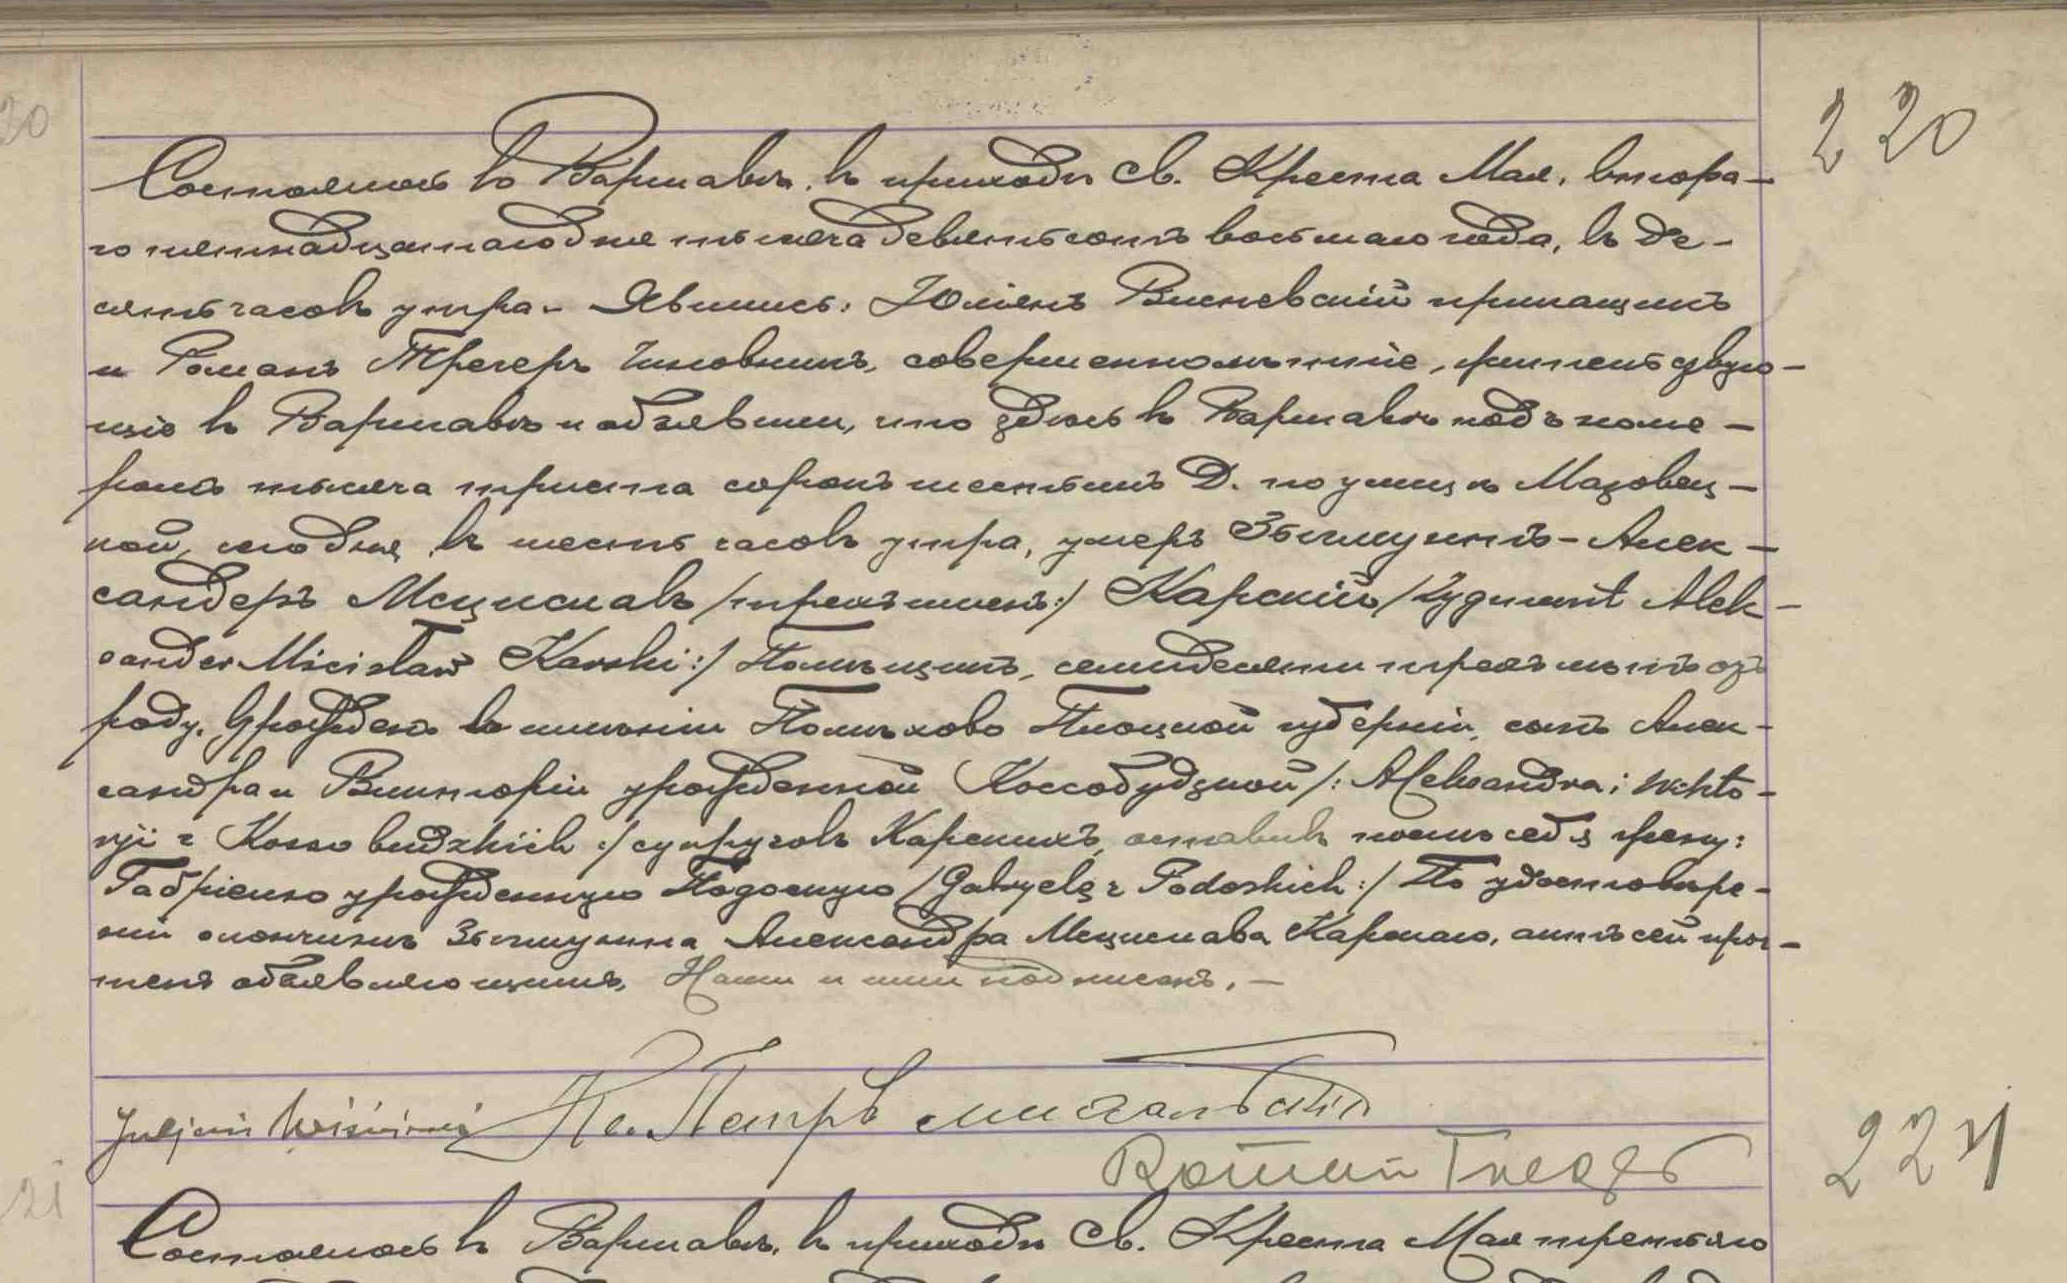 20
220
Состоялось въ Варшавѣ, въ приходѣ Св. Креста Мая, втора-
го пятнадцатаго дня тысяча девятьсотъ восьмаго года, въ де-
сять часовъ утра. – Явились: Юліянъ Висневскій прикащикъ
и Романъ Трегеръ чиновникъ, совершеннолѣтніе, жительствую-
щіе въ Варшавѣ и объявили, что здѣсь въ Варшавѣ подъ номе-
ромъ тысяча триста сорокъ шестымъ Д. по улицѣ Мазовец-
кой, сего дня, въ шесть часовъ утра, умеръ Зыгмунтъ-Алек-
сандеръ Мщиславъ /трехъ именъ:/ Карскій /Zygmunt Alek-
sander Mścisław Karski:/ Помѣщикъ, семидесяти трехъ лѣтъ отъ
роду. Урожденъ въ имѣніи Полѣхово Плоцкой губерніи, сынъ Алек-
сандра и Викторіи урожденной Коссобудзкой /: Aleksandra i Wikto-
ryi z Kossobudzkich :/ супруговъ Карскихъ, оставивъ послѣ себя жену:
Габріелю урожденную Подоскую /Gabryelę z Podoskich :/ По удостовѣре-
ніи о кончинѣ Зыгмунта Александра Мщислава Карскаго, актъ сей проч-
тенъ объявляющимъ, Нами и ими подписанъ. –
Juljan Wiśniewski Кс. Петръ
Roman Treger
221
21
Состоялось въ Варшавѣ, въ приходѣ Св. Креста Мая третьяго